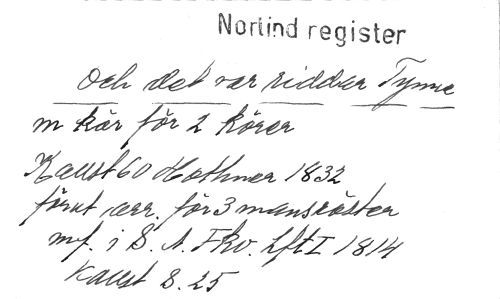 Norlind register
Och det var riddar Tynne
m kör för 2 körer
Kallst 60 Hæffner 1832
förut arr. för 3 mansröster
mf. i S. A. Fkv. Hft I 1814
Kallst S. 25